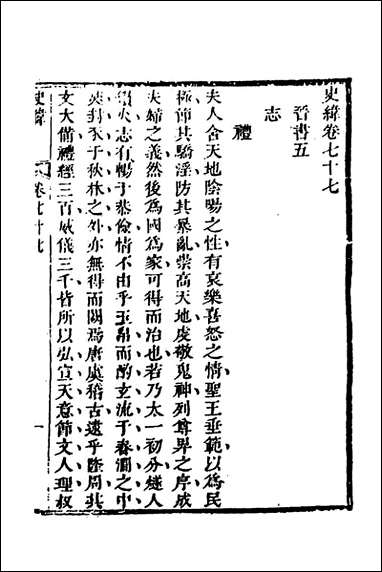 史緯卷七十七
晉書五
志
禮
夫人含天地陰陽之性有哀樂喜怒之情聖王垂範以為民
極節其驕淫防其暴亂崇高天地虔敬鬼神列尊卑之序成
夫婦之義然後為國為家可得而治也若乃太一初分燧人
鑽火志有暢于恭儉情不由乎玉帛而酌玄流于春澗之中
焚封豕于秋林之外亦無得而闕焉唐虞稽古逮乎隆周其
文大備禮經三百威儀三千皆所以弘宣天意節文人理叔
史緯
卷七十七
一